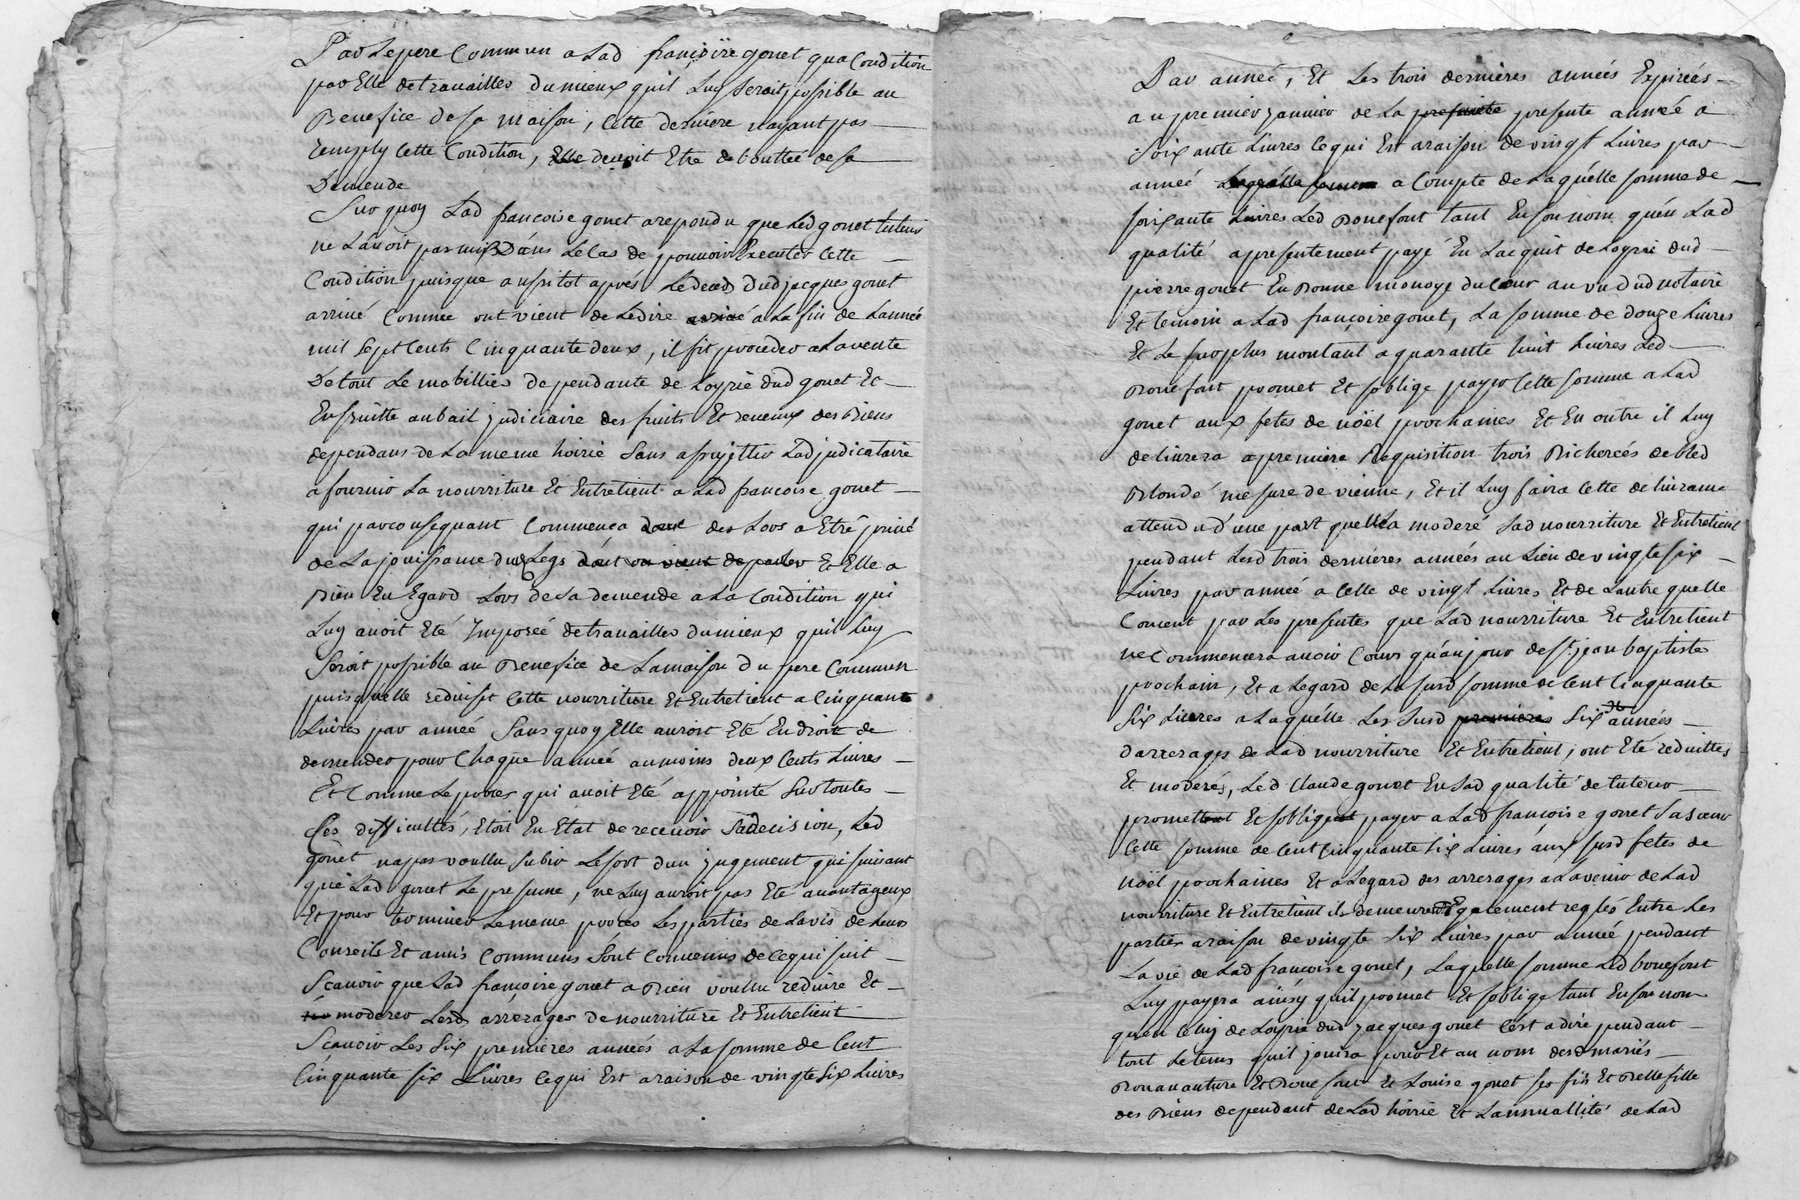 Par Le pere Commun a Lad françoise gonet qua Condition
par Elle de travailler du mieux quil Luy Seroit possible au
Benefice de sa maison, Cette derniere nayant pas
remply Cette Condition, Elle devoit Etre deboutteé de sa
Demende
Sur quoy Lad françoise gonet a repondu que Led gonet tuteur
ne Lavoit pas mis Dans Le Cas de pouvoir Executer Cette
Condition puisque aussitot aprés Le deceds dud jacques gonet
arrivé Comme ont vient de Le dire arrivé a La fin de Lanneé
mil Sept Cents Cinquante deux, il fit proceder a La vente
De tout Le mobillier dependante de Loyrie dud gonet Et
Ensuitte au bail judiciaire des fruits Et revenux des Biens
dependans de La meme hoirié Sans assujettir Ladjudicataire
a fournir La nourriture Et Entretient a Lad francoise gonet
qui par conseguant Commenca dont des Lors a Etre privé
de La jouissance du Legs dont on vient de parler Et Elle a
Bien Eu Egard Lors de Sa demende a La Condition qui
Luy avoit Eté Imposeé de travailler du mieux quil Luy
Seroit possible au Benefice de La maison Du pere Commun
puisquelle reduisit Cette nourriture Et Entretient a Cinquante
Livres par anneé Sans quoy Elle auroit Eté En droit de
demender pour Chaque anneé au moins deux Cents Livres
Et Comme Le proces qui avoit Eté appointé Sur toutes
Ces difficultés, Etoit En Etat de recevoir Sa decision, Led
gonet na pas voullu Subir Le sort dun jugement qui suivant
que Lad gonet Le presume, ne Luy auroit pas Eté avantageux
Et pour terminer Le meme proces Les parties de Lavis de Leurs
Conseils Et amis Communs Sont Convenus de Ce qui suit
Scavoir que Lad françoise gonet a Bien voullu reduire Et
moderer Lesd arrerages de nourriture Et Entretient
Scavoir Les Six premieres anneés a La somme de Cent
Cinquante six Livres Ce qui Est a raison de vingte six Livres
Par anneé, Et Les trois dernieres anneés Expireés
au premier janvier de La presente presente anneé a
Soixante Livres Ce qui Est a raison de vingt Livres par
anneé Laquelle somme a Compte de Laquélle somme de
soixante Livres Led Bonefont tant En son nom quén Lad
qualité a presentement payé En Lacquit de Loyrie dud
pierre gonet En Bonne monoye du Cour au vu dud notaire
Et temoin a Lad françoise gonet, La somme de douze Livres
Et Le surplus montant a quarante huit Livres Led
Bonefont promet Et soblige payer Cette somme a Lad
gonet aux fetes de nöel prochaines Et En outre il Luy
delivrera a premiere Requisition trois Bichereés de bled
Blondé mesure de vienne, Et il Luy faira Cette delivrance
attendu dúne part quellea moderé Sad nourriture Et Entretient
pendant Lesd trois derniéres anneés au Lieu de vingte six
Livres par anneé a Celle de vingt Livres Et de Lautre quelle
Concent par Les presentes que Lad nourriture Et Entretient
ne Commencera avoir Cours quáu jour de st jean baptiste
prochain, Et a Legard de La susd somme de Cent Cinquante
Six Livres a Laquélle Les susd premieres Six anneés
darrerages de Lad nourriture Et Entretient, ont Eté reduittes
Et moderés, Led Claude gonet En Sad qualité de tuteur
promettent Et sobligent payer a Lad francoise gonet Sa soeur
Cette somme de Cent Cinquante six Livres aux susd fetes de
Nöel prochaines Et a Legard des arrerages a Lavenir de Lad
nourriture Et Entretient ils demeureront Egalement reglés Entre Les
parties a raison de vingte six Livres par anneé pendant
La vie de Lad francoise gonet, Laquelle somme Led bonefont
Luy payera ainsy quil promet Et soblige tant En son nom
quén Celuy de Loyrie dud jacques gonet Cest a dire pendant
tout Le tems quil jouira pour Et au nom desd mariés
Bonavanture Et Bonefont Et Louise gonet ses fils Et Belle fille
des Biens dependant de Lad hoirié Et Lannuallité de Lad